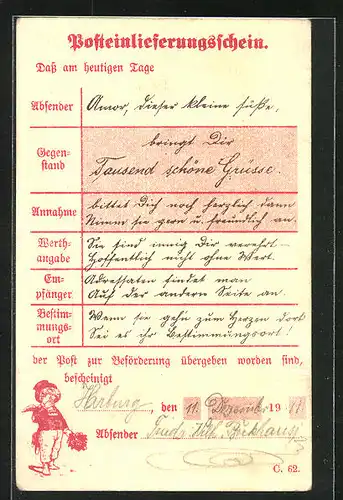 Posteinlieferungsschein.
Daß am heutigen Tage
Absender Amor, dieser kleine süße,
Gegen-
stand
bringt Dir
Tausend schöne Grüsse.
Annahme
bittet Dich noch herzlich dann
Nimm sie gern u. freundlich an.
Werth-
angabe
Sie sind innig Dir verehrt –
Hoffentlich nicht ohne Wert.
Em-
pfänger
Adressaten findet man
Auf der andern Seite an
Bestim-
mungs-
ort
Wenn sie gehn zum Herzen dort
Sei es ihr Bestimmungsort!
der Post zur Beförderung übergeben worden sind,
bescheinigt
, den 11. Dezember 19 11.
Absender
C. 62.